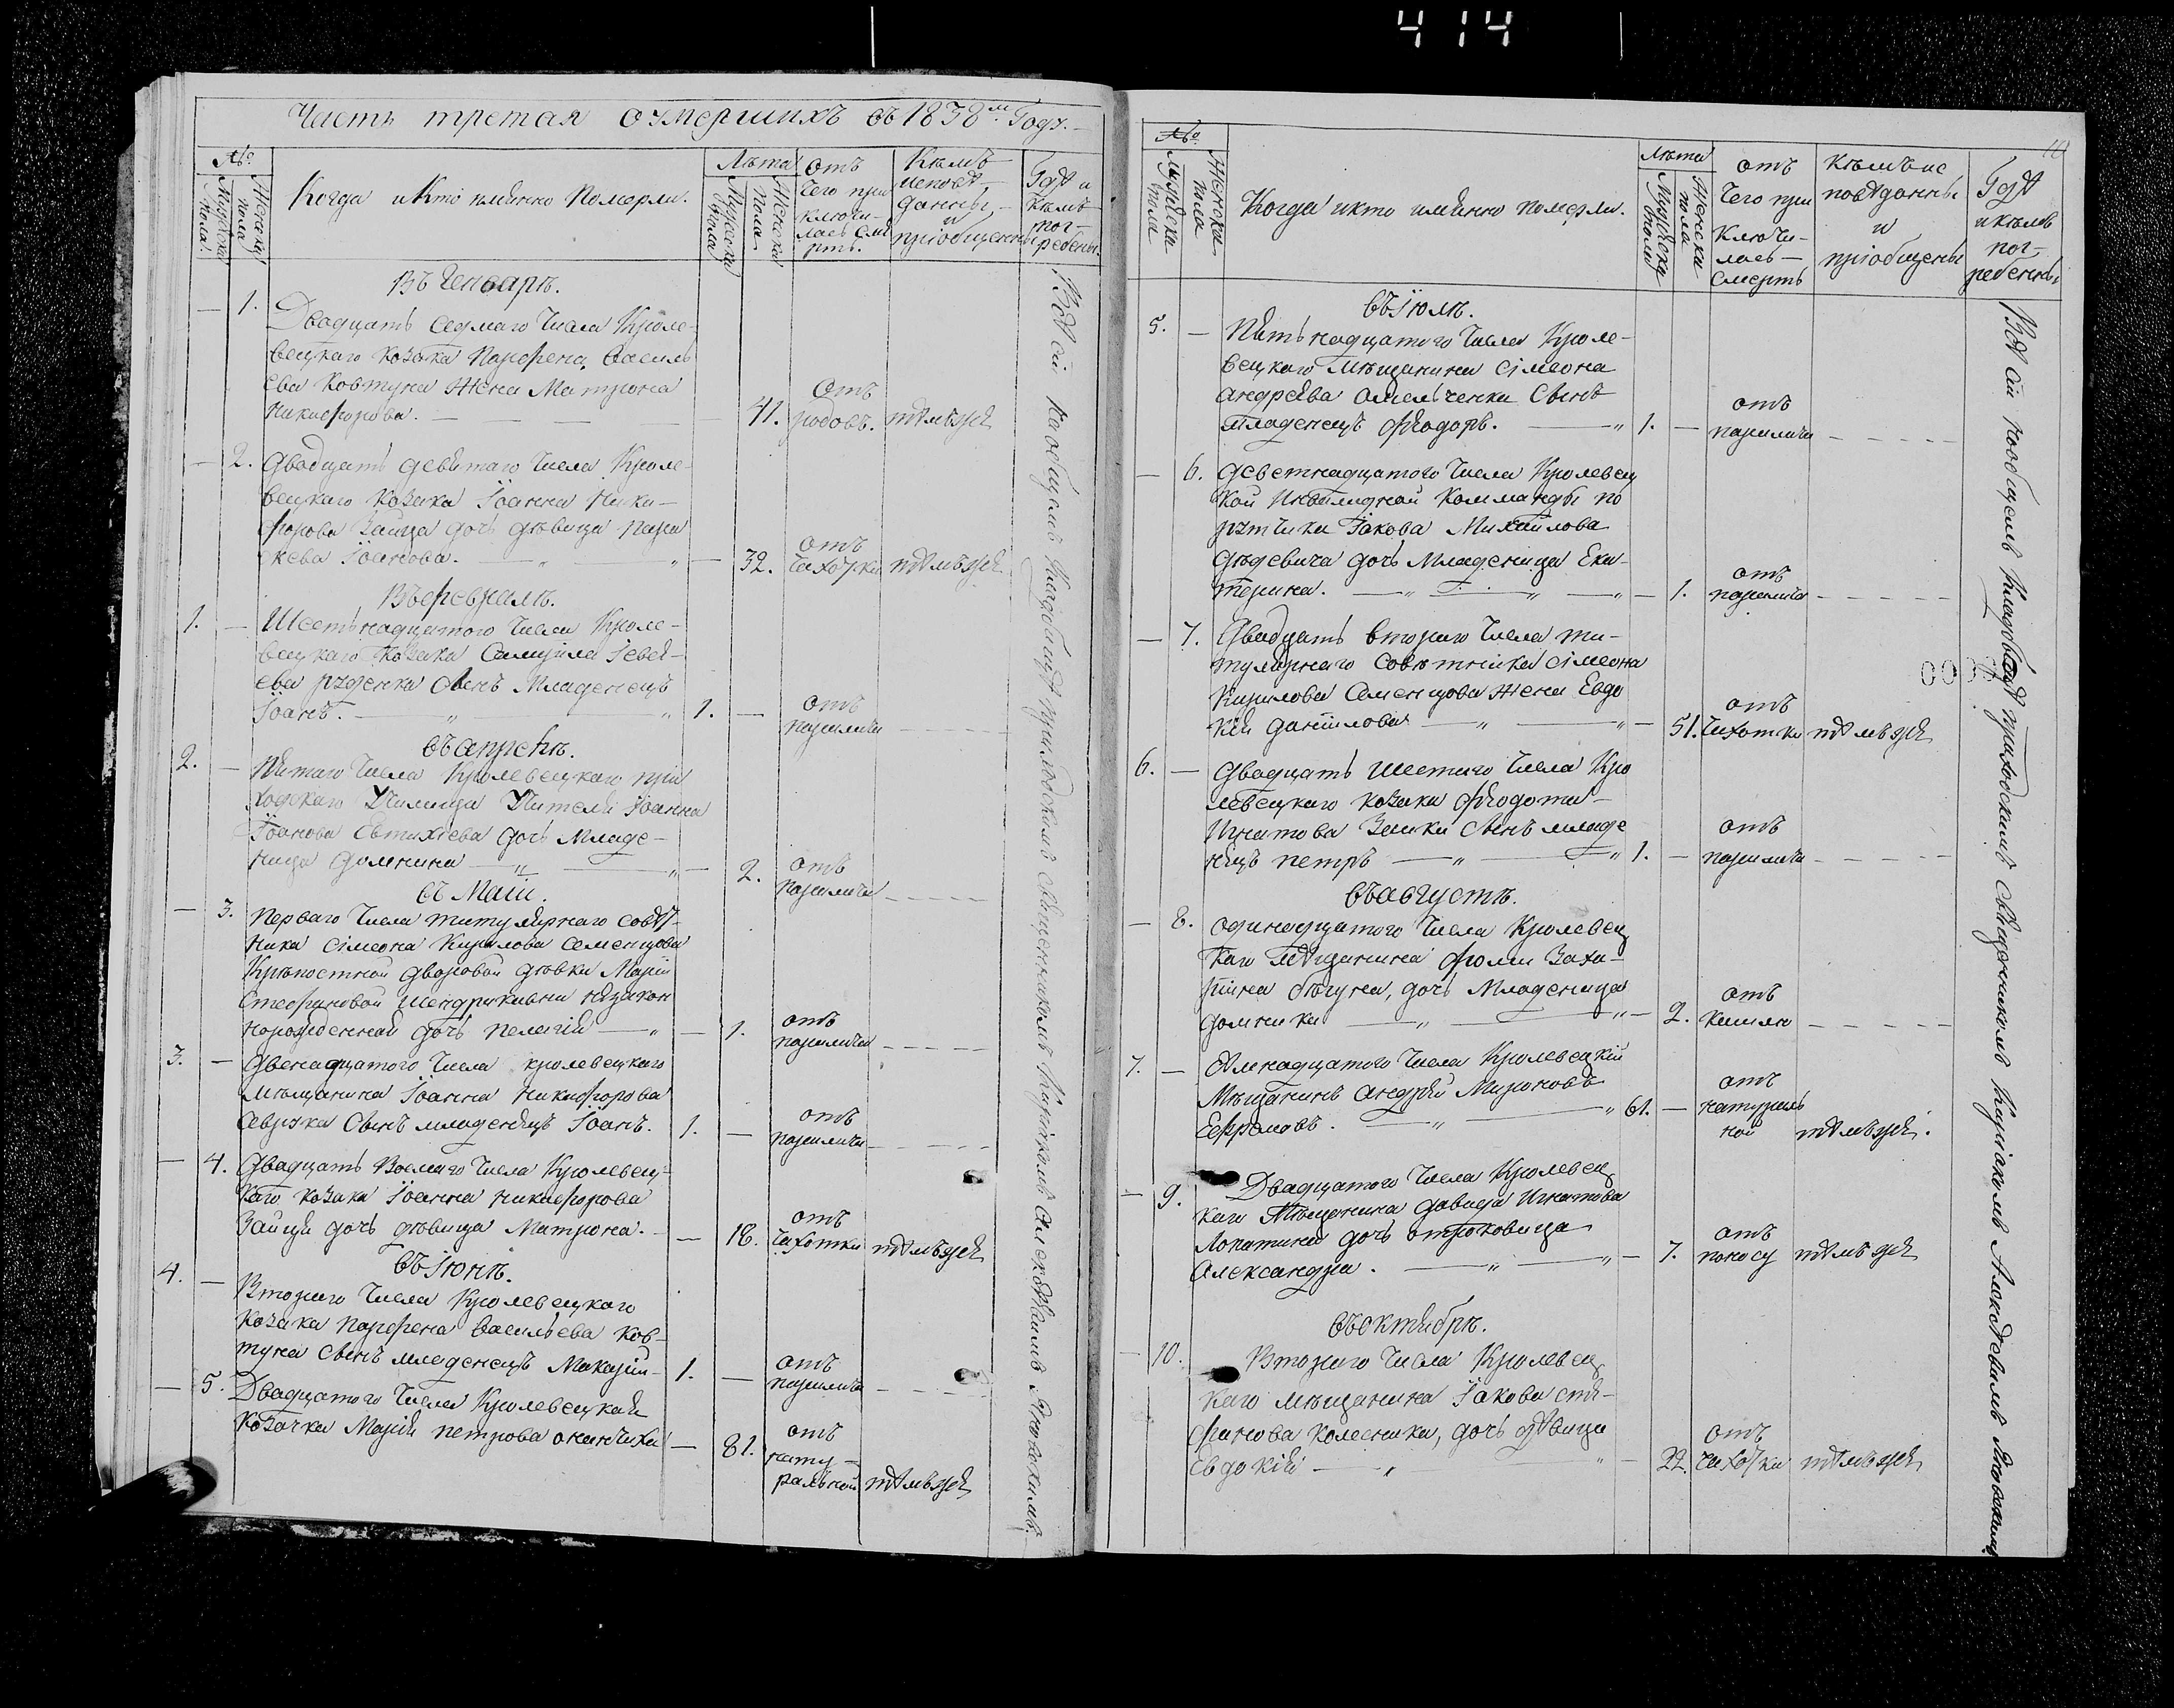 414
Часть третая о умершихъ въ 1838м. Году.
№о.
Мужеска пола.
Женска пола
Когда и кто именно Померли.
Лѣта
Мужеска пола
Женска пола
отъ
чего при
ключи-
лась сме
рть.
Кѣмъ
исповѣ-
данны
и
пріобщенны
Гдѣ и
кѣмъ
пог-
ребены.
Въ Генварѣ.
— 1. Двадцать седмаго числа Кроле-
вецкаго козака Парфена Василь
ева Ковтуна жена Матрона
Никифорова. — 41. отъ родовъ. тѣмъ же
— 2. Двадцать девятаго числа Кроле-
вецкаго козака Іоанна Ники-
форова Зайца дочь дѣвица Пара
скева Іоаннова. — 32. отъ чахотки тѣмъ же
Въ Февралѣ.
1. — Шестьнадцатого числа Кроле-
вецкаго козака Самуила
сынъ Младенецъ
Іоанъ. 1. — отъ паралича
Въ Апрелѣ.
2. — Пятаго числа Кролевецкаго при
ходскаго Училища Учителя Іоанна
Іоанова Евтихіева дочь Младе-
ница Домникия — 2. отъ паралича
Въ Маіи.
— 3. Перваго числа титулярнаго совѣт-
ника Сімеона Кирилова Семенцова
Крѣпостной дворовой дѣвки Маріи
Стефановой незакон
норожденная дочь Пелагія — 1. отъ паралича
3. — Двенадцатого числа кролевецкаго
мѣщанина Іоанна Никифорова
Авруха сынъ младенецъ Іоанъ. 1. — отъ паралича
— 4. Двадцать Восмаго числа Кролевец-
каго козака Іоанна Никифорова
Зайца дочь дѣвица Матрона. — 18. отъ чахотки тѣмъ же
Въ Іюнѣ.
4. — Втораго числа Кролевецкаго
козака Парфена Васильева Ков-
туна сынъ младенецъ Макарій 1. — отъ паралича
— 5. Двадцатого числа Кролевецкая
козачка Марія Петрова — 81. отъ нату-
ральной тѣмъ же
Всѣ сіи на общемъ Кладбищѣ приходскимъ Священникомъ Киріакомъ Алексѣевымъ
10
№о.
Мужеска пола
Женска пола
Когда и кто именно померли.
Лѣта
Мужеска пола
Женска пола
отъ
чего при
ключи-
лась
смерть
кѣмъ ис
повѣданны
и
пріобщены
Гдѣ
и кѣмъ
пог-
ребенны
Въ Іюлѣ.
5. — Пятьнадцатого числа Кроле-
вецкаго мѣщанина Сімеона
Андреева Омельченка сынъ
младенецъ Феодоръ. 1. — отъ паралича
— 6. Деветнадцатого числа Кролевец
кой Инвалидной Комманды по
рутчика Іакова Михайлова
дочь младеница Ека-
терина. — 1. отъ паралича
— 7. Двадцать втораго числа ти-
тулярнаго совѣтника Сімеона
Кирилова Семенцова жена Евдо
кія Даніилова — 51. отъ чахотки тѣмъ же
6. — Двадцать шестаго числа Кро
левецкаго козака Феодота
Игнатова Заики сынъ младе
нецъ Петръ 1. — отъ паралича
0097
Въ Августѣ.
— 8. одинадцатого числа Кролевец
каго мѣщанина Фомы Заха-
рина дочь Младеница
Домника — 2. отъ кашля
7. — числа Кролевецкій
мѣщанинъ Андрей Мироновъ
Ефромовъ. 61. — отъ натураль
ной тѣмъ же.
— 9. Двадцатого числа Кролевец
каго мѣщанина Давида Игнатова
Лопатина дочь отроковица
Александра. — 7. отъ поносу тѣмъ же
Въ Октябрѣ.
— 10. Втораго числа Кролевец
каго мѣщанина Іакова Сте-
фанова Колесника, дочь дѣвица
Евдокія — 22. отъ чахотки тѣмъ же
Всѣ сіи на общемъ Кладбищѣ приходскимъ Священникомъ Киріакомъ Алексѣевымъ